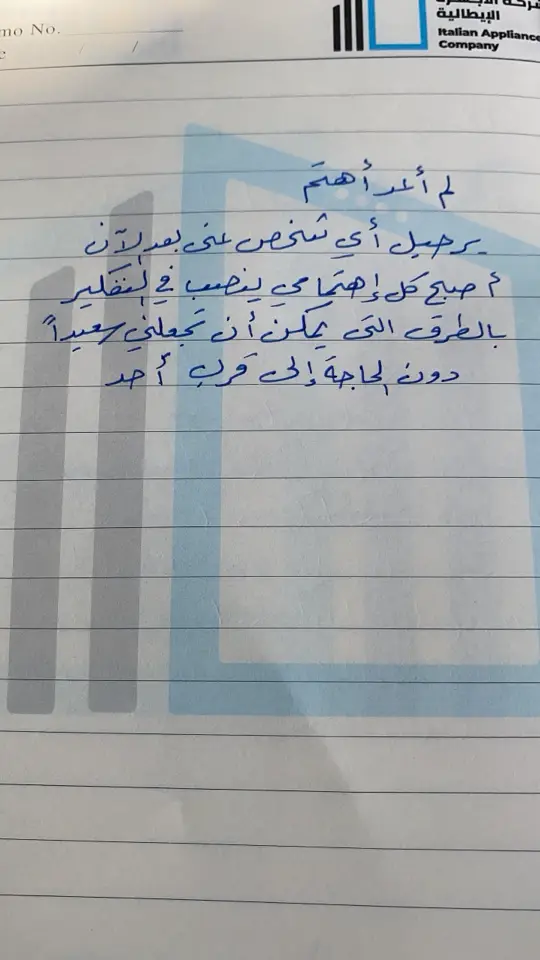 mo No.
الإيطالية
Italian Appliance
Company
لم أعد أهتم
برحيل أي شخص عنى بعد الآن
أصبح كل إهتمامي ينصب في التفكير
بالطرق التى يمكن أن تجعلني سعيداً
دون الحاجة إلى قرب أحد